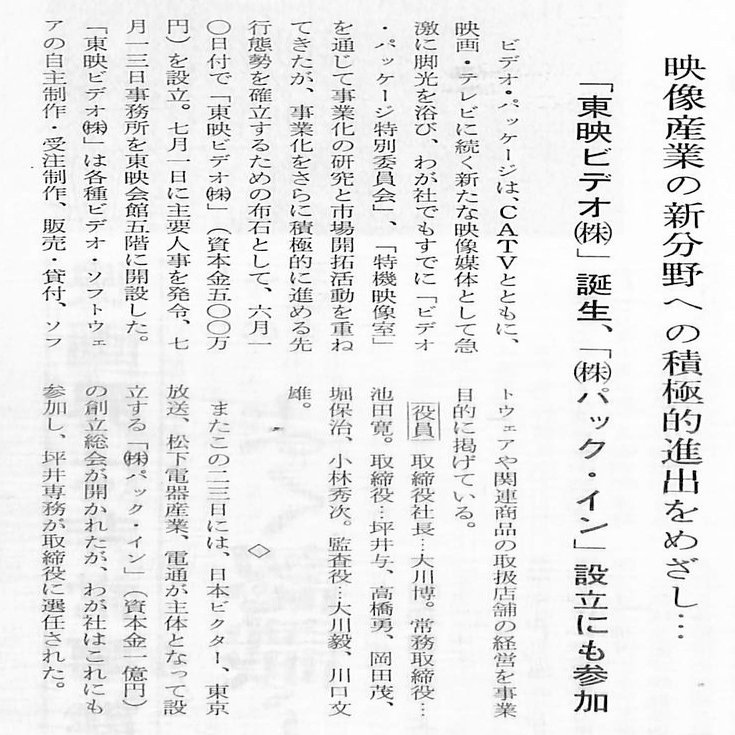 映像産業の新分野への積極的進出をめざし…
「東映ビデオ㈱」誕生、「㈱パック・イン」設立にも参加
ビデオ・パッケージは、CATVとともに、
映画・テレビに続く新たな映像媒体として急
激に脚光を浴び、わが社でもすでに「ビデオ
・パッケージ特別委員会」、「特機映像室」
を通じて事業化の研究と市場開拓活動を重ね
てきたが、事業化をさらに積極的に進める先
行態勢を確立するための布石として、六月一
〇日付で「東映ビデオ㈱」（資本金五〇〇万
円）を設立。七月一日に主要人事を発令、七
月一三日事務所を東映会館五階に開設した。
「東映ビデオ㈱」は各種ビデオ・ソフトウェ
アの自主制作・受注制作、販売・貸付、ソフ
トウェアや関連商品の取扱店舗の経営を事業
目的に掲げている。
役員　取締役社長…大川博。常務取締役…
池田寛。取締役…坪井与、高橋勇、岡田茂、
堀保治、小林秀次。監査役…大川毅、川口文
雄。
◇
またこの二三日には、日本ビクター、東京
放送、松下電器産業、電通が主体となって設
立する「㈱パック・イン」（資本金一億円）
の創立総会が開かれたが、わが社はこれにも
参加し、坪井専務が取締役に選任された。